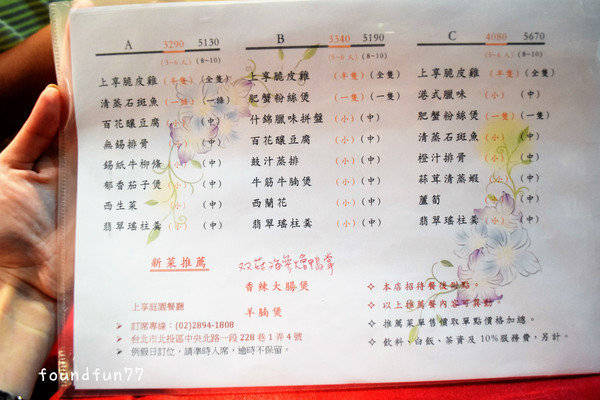 A 3290 5130
(5~6人) (8~10)
上享脆皮雞 (半隻) (全隻)
清蒸石斑魚 (一條) (一條)
百花釀豆腐 (小) (中)
無錫排骨 (小) (中)
錫紙牛柳條 (小) (中)
郁香茄子煲 (小) (中)
西生菜 (小) (中)
翡翠瑤柱羹 (小) (中)
B 3340 5190
(5~6人) (8~10)
上享脆皮雞 (半隻) (全隻)
肥蟹粉絲煲 (一隻) (一隻)
什錦臘味拼盤 (小) (中)
百花釀豆腐 (小) (中)
鼓汁蒸排 (小) (中)
牛筋牛腩煲 (小) (中)
西蘭花 (小) (中)
翡翠瑤柱羹 (小) (中)
C 4080 5670
(5~6人) (8~10)
上享脆皮雞 (半隻) (全隻)
港式臘味 (小) (中)
肥蟹粉絲煲 (一隻) (一隻)
清蒸石斑魚 (小) (中)
橙汁排骨 (小) (中)
蒜茸清蒸蝦 (小) (中)
蘆筍 (小) (中)
翡翠瑤柱羹 (小) (中)
新菜推薦
香辣大腸煲
羊腩煲
上享庭園餐廳
訂席專線：(02)2894-1808
台北市北投區中央北路一段 228 巷 1 弄 4 號
例假日訂位，請準時入席，逾時不保留。
本店招待餐後甜點。
以上推薦餐內容可異動
推薦菜單售價取單點價格加總。
飲料、白飯、茶資及 10%服務費，另計。
foundfun77